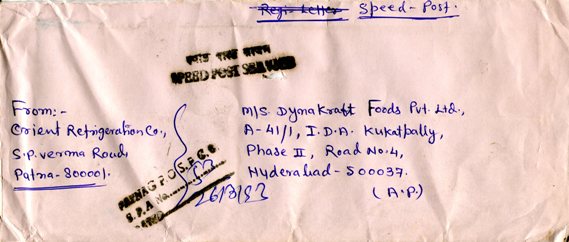 Regi. Letter Speed-Post.
SPEED POST
From:-
Orient Refrigeration Co.,
S.P. verma Road,
Patna-800001.
M/S. Dynakraft Foods Pvt. Ltd.,
A-41/1, I.D.A. Kukatpally,
Phase II, Road No.4,
Hyderabad-500037.
(A.P.)
S.P.A No.
26/8/93